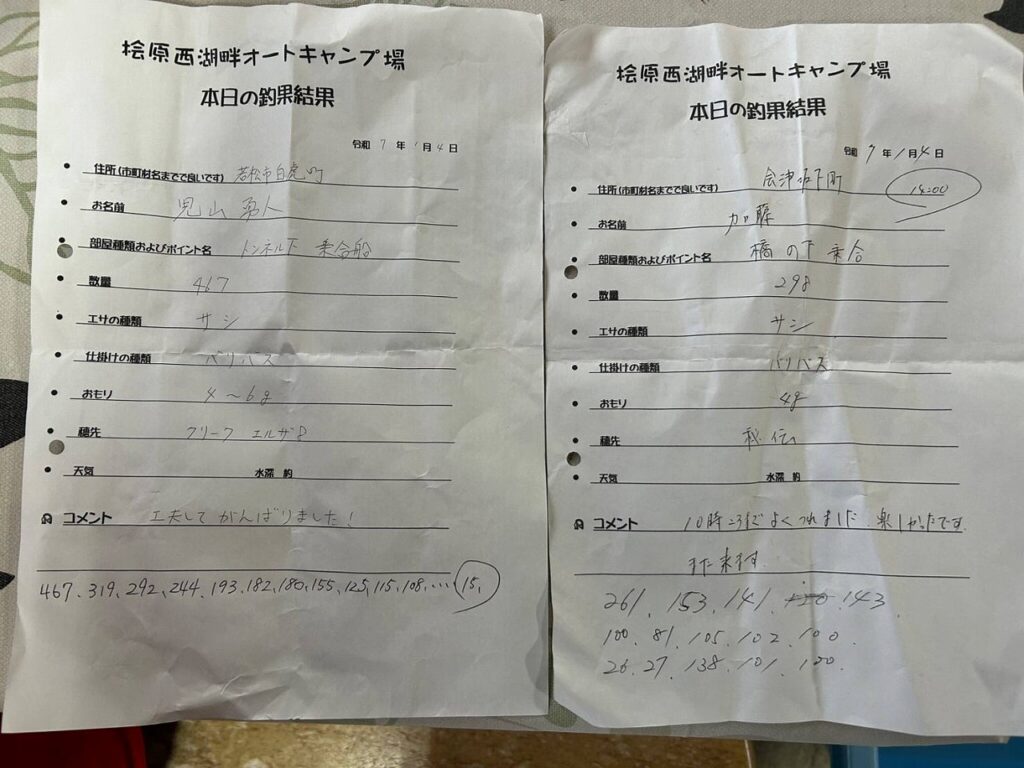 桧原西湖畔オートキャンプ場
本日の釣果結果
令和 7 年 1 月 4 日
住所(市町村名までで良いです) 若松市白虎町
お名前 児山 勇人
部屋種類およびポイント名 トンネル下 乗合船
数量 467
エサの種類 サシ
仕掛けの種類 バリバス
おもり 4〜6g
穂先 クリーク エルザ8
天気 水深 約
コメント 工夫してがんばりました!
467、319、292、244、193、182、180、155、125、115、108、…… 15、
桧原西湖畔オートキャンプ場
本日の釣果結果
令和 7 年 1 月 4 日
住所(市町村名までで良いです) 会津坂下町 14:00
お名前 加藤
部屋種類およびポイント名 橋の下 乗合
数量 298
エサの種類 サシ
仕掛けの種類 バリバス
おもり 4g
穂先 秘伝
天気 水深 約
コメント 10時ころまでよくつれました 楽しかったです。
また来ます。
261、153、141、120、143、
100、81、105、102、100、
26、27、138、101、100、